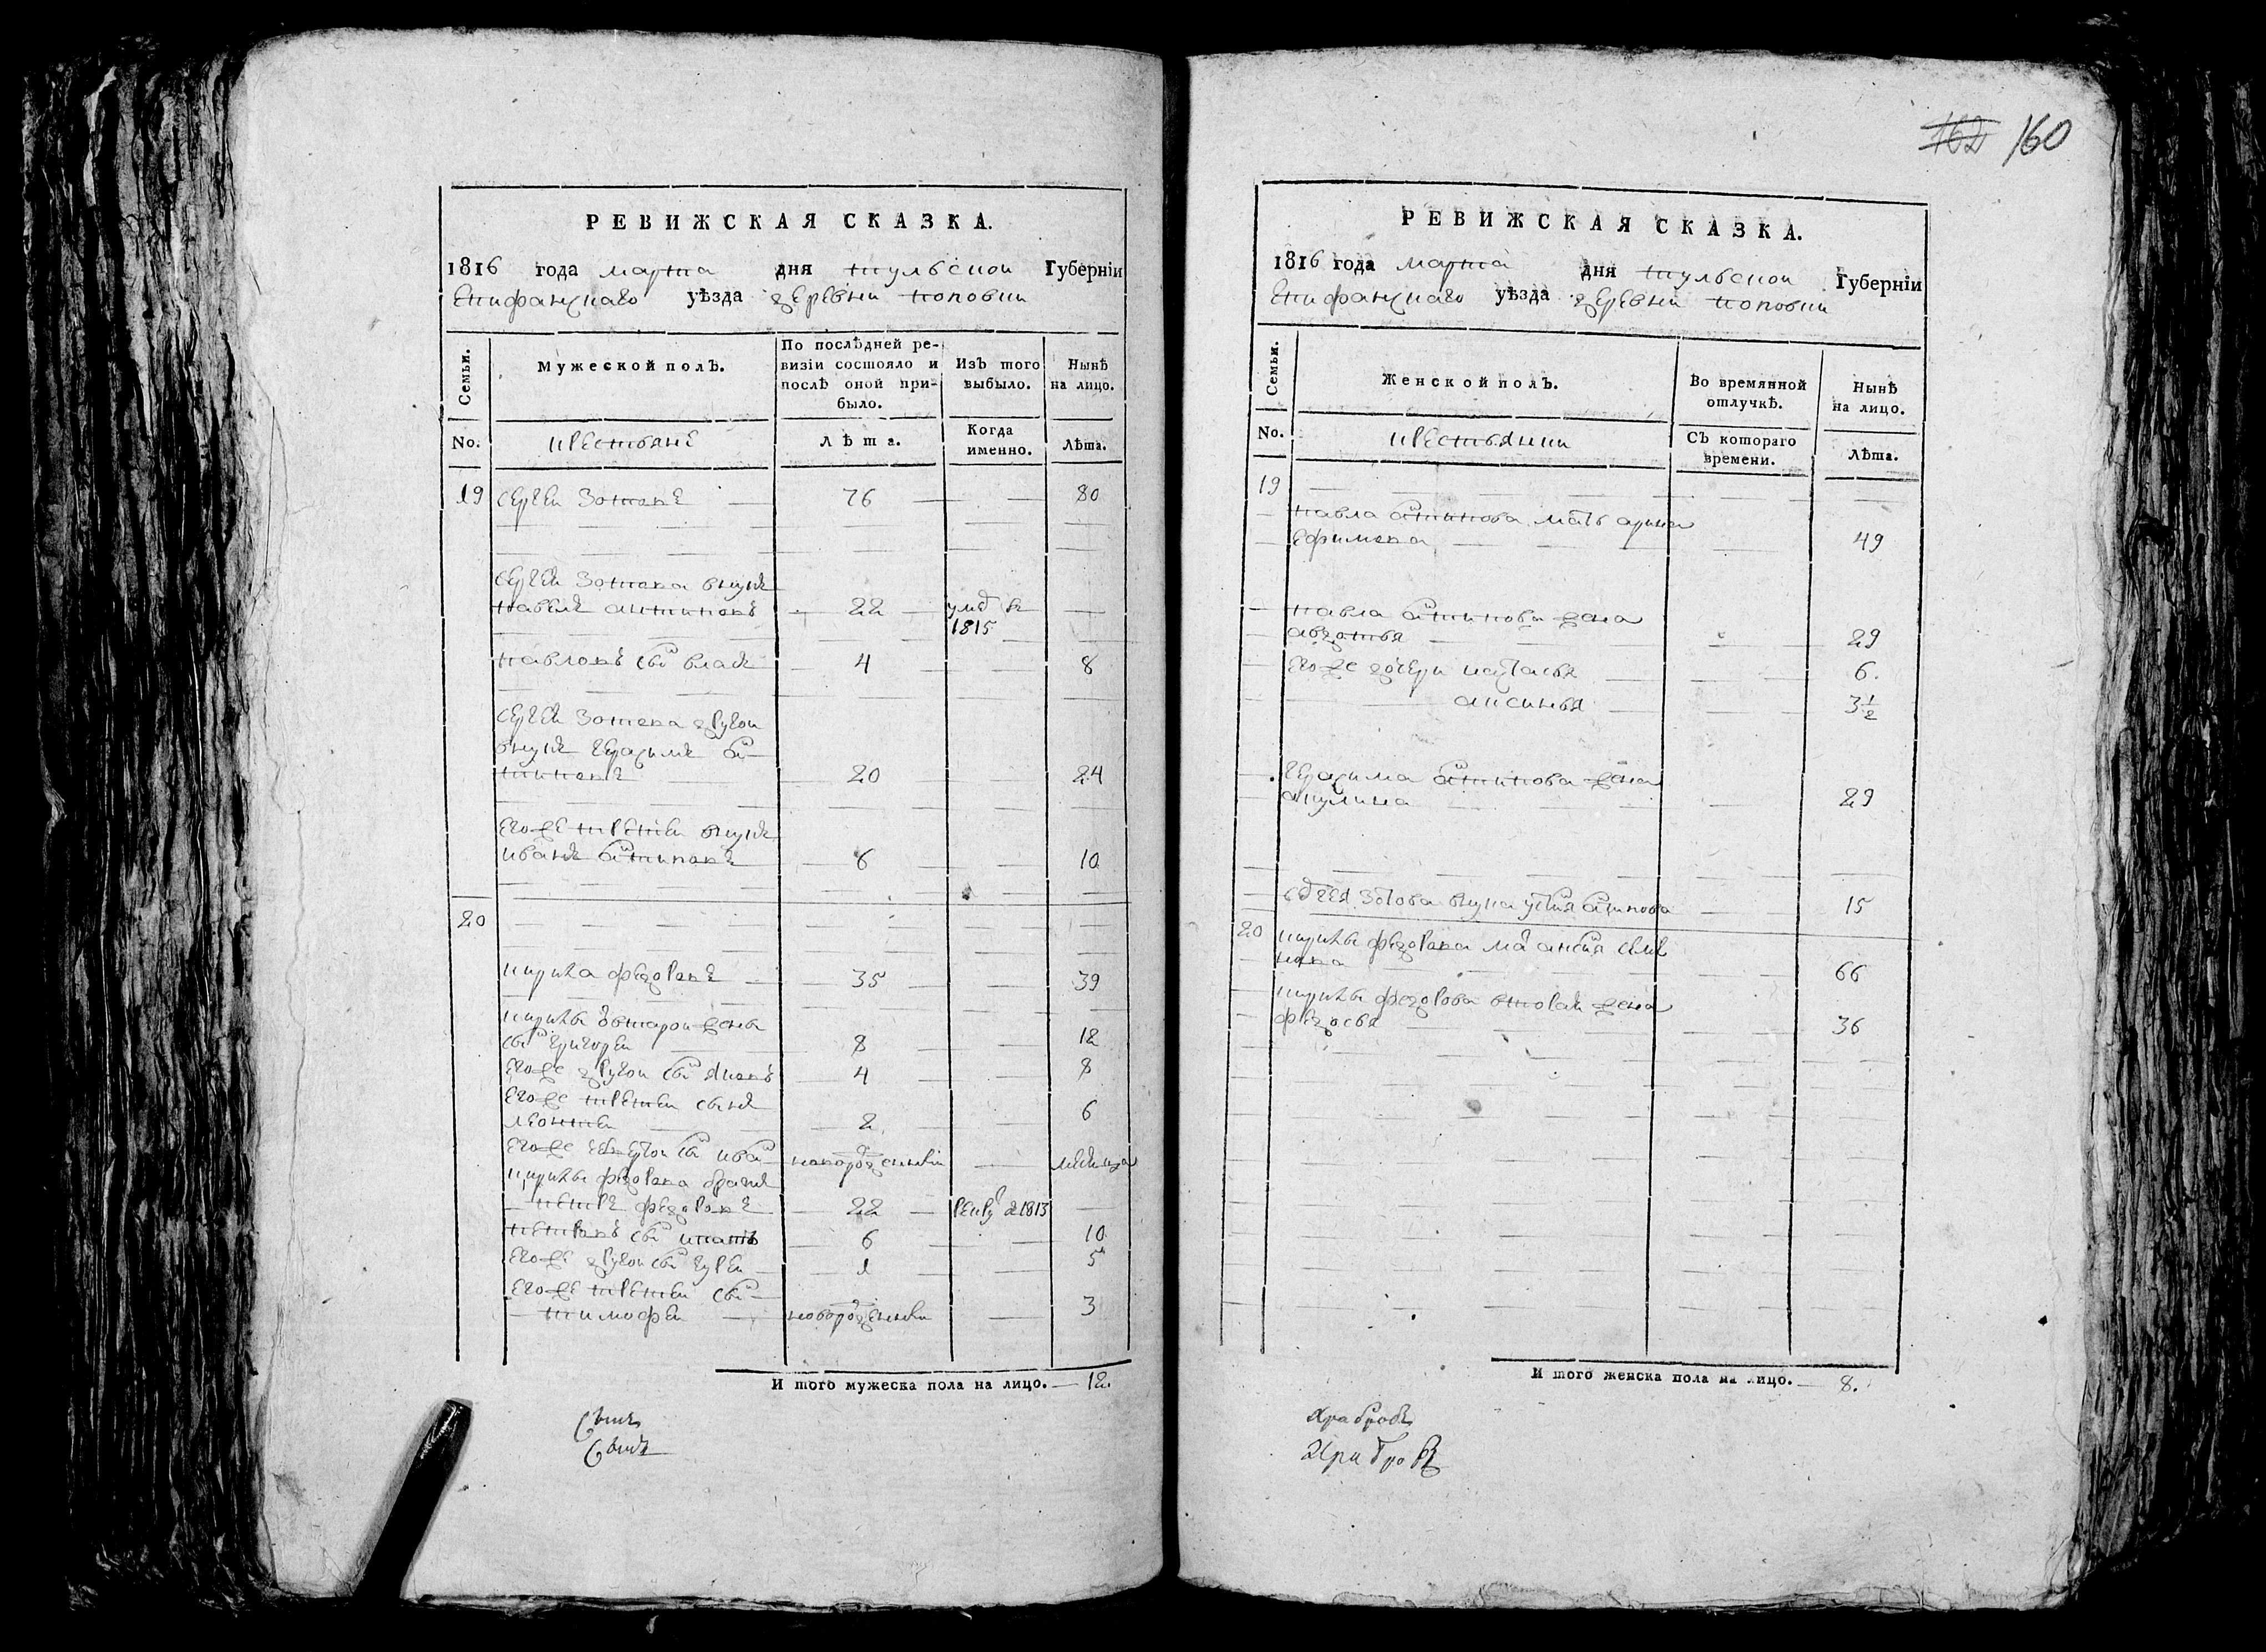 162 160
РЕВИЖСКАЯ СКАЗКА.
1816 года марта дня тульской Губерніи
Епифанскаго уѣзда деревни поповки
Семьи.
Мужеской полъ.
По послѣдней ревизіи состояло и послѣ оной прибыло.
Изъ того выбыло.
Нынѣ на лицо.
No.
крестьяне
Лѣта.
Когда именно.
Лѣта.
19 сергеи Зотовъ 76 80
сергея Зотова внукъ
павелъ антиповъ 22 умр въ
1815
павловъ сынъ власъ 4 8
сергея Зотова другои
внукъ герасимъ ан-
типовъ 20 24
его же третеи внукъ
иванъ антиповъ 6 10
20
кирила федоровъ 35 39
кирилы второи жены
сынъ григореи 8 12
его же другои сынъ яковъ 4 8
его же третеи сынъ
леонтеи 2 6
его же сынъ иванъ новорожденныи
кирилы федорова братъ
петръ федоровъ 22 рекру в 1813
петровъ сынъ игнатъ 6 10
его же другои сынъ гуреи 1 5
его же третеи сынъ
тимофеи новорожденныи 3
И того мужеска пола на лицо. 12.
РЕВИЖСКАЯ СКАЗКА.
1816 года марта дня тульской Губерніи
Епифанскаго уѣзда деревни поповки
Семьи.
Женской полъ.
Во времянной отлучкѣ.
Нынѣ на лицо.
No.
крестьянки
Съ котораго времени.
Лѣта.
19
павла антипова мать арина
ефимова 49
павла антипова жена
авдотья 29
его же дочери настасья 6.
аксинья 3 1/2
герасима антипова жена
акулина 29
сергея Зотова внука антипова 15
20 кирилы федорова мать
66
кирилы федорова вторая жена
федосья 36
И того женска пола на лицо. 8.
Храбровъ
Храбровъ